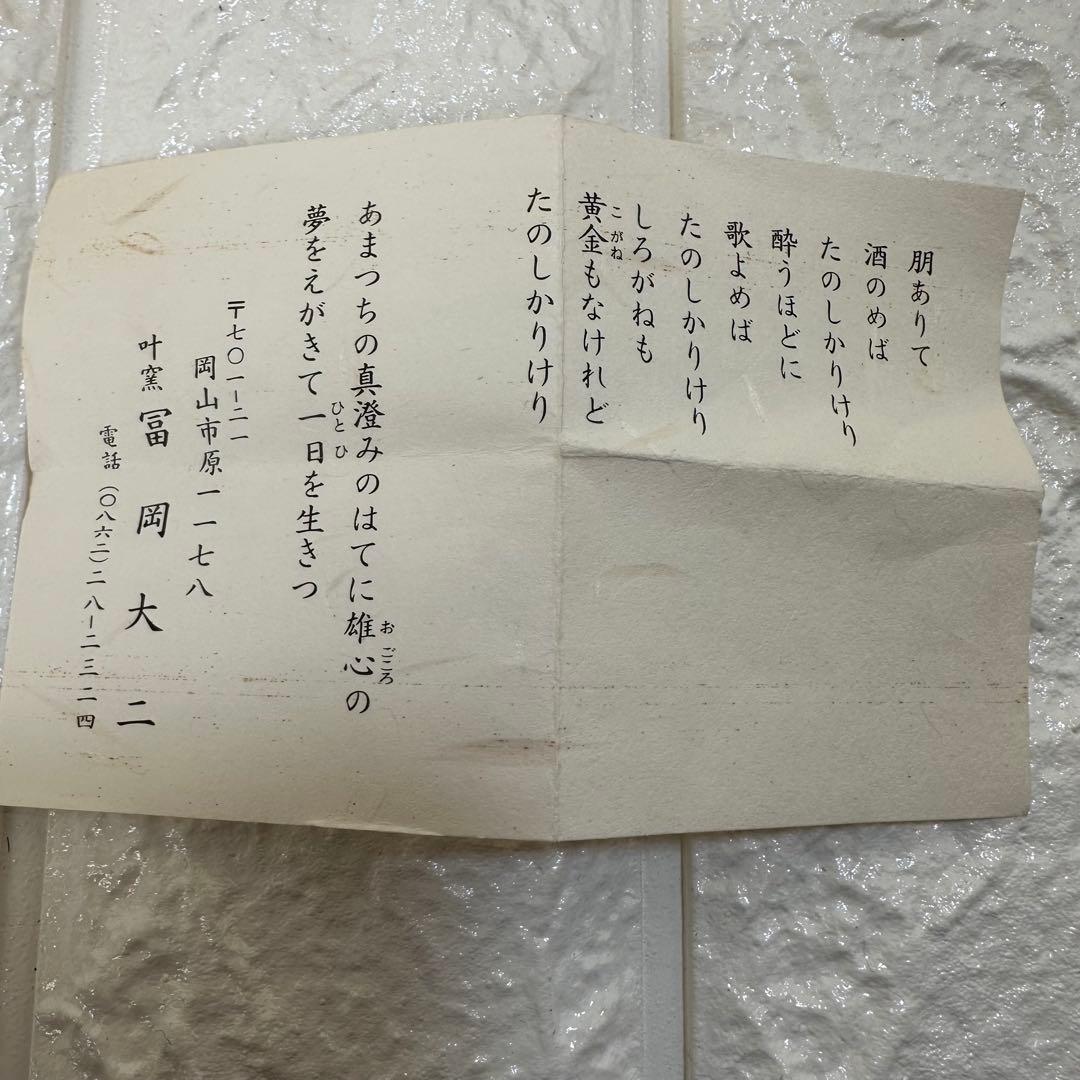 朋ありて
酒のめば
たのしかりけり
酔うほどに
歌よめば
たのしかりけり
しろがねも
黄金もなけれど
こがね
たのしかりけり
あまつちの真澄みのはてに雄心の
おごころ
夢をえがきて一日を生きつ
ひとひ
〒七〇一ー二一
岡山市原一一七八
叶窯 冨岡大二
電話(〇八六二)二八ー二三二四